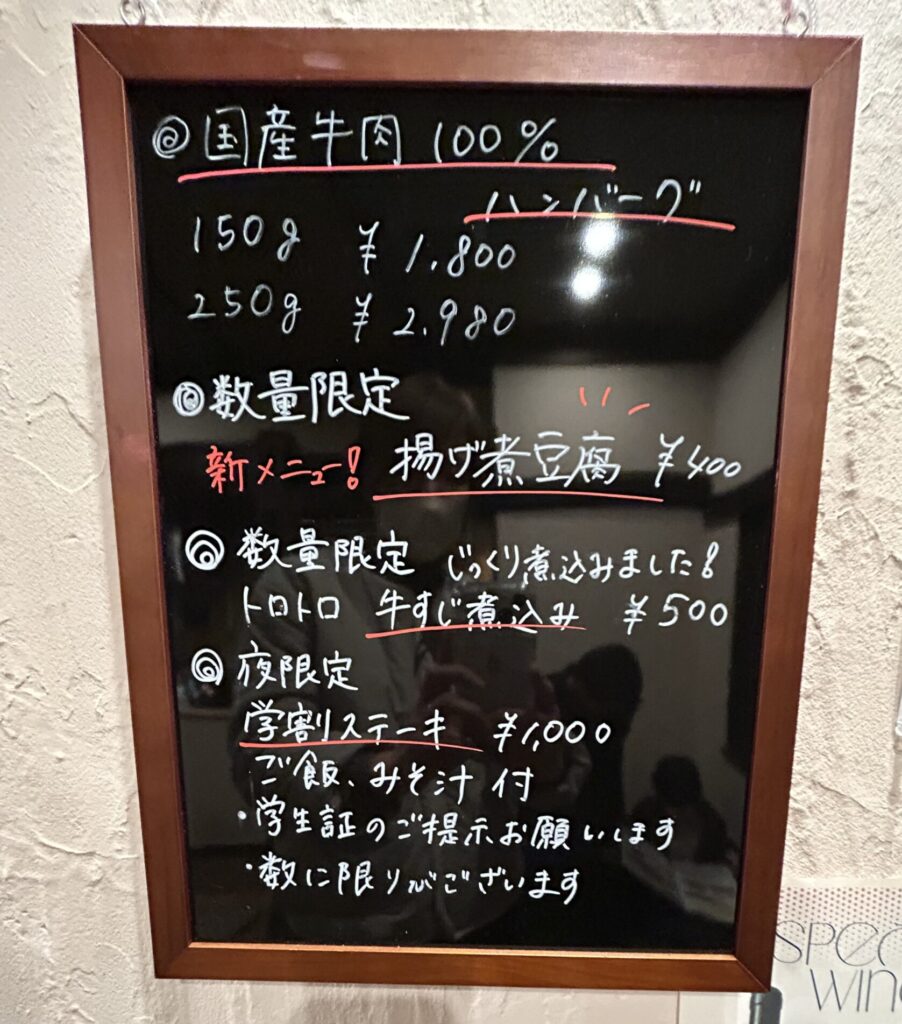 ◎国産牛肉 100%
ハンバーグ
150g ¥1.800
250g ¥2.980
◎数量限定
新メニュー! 揚げ煮豆腐 ¥400
◎数量限定 じっくり煮込みました!
トロトロ 牛すじ煮込み ¥500
◎夜限定
学割ステーキ ¥1,000
ご飯、みそ汁 付
・学生証のご提示お願いします
・数に限りがございます